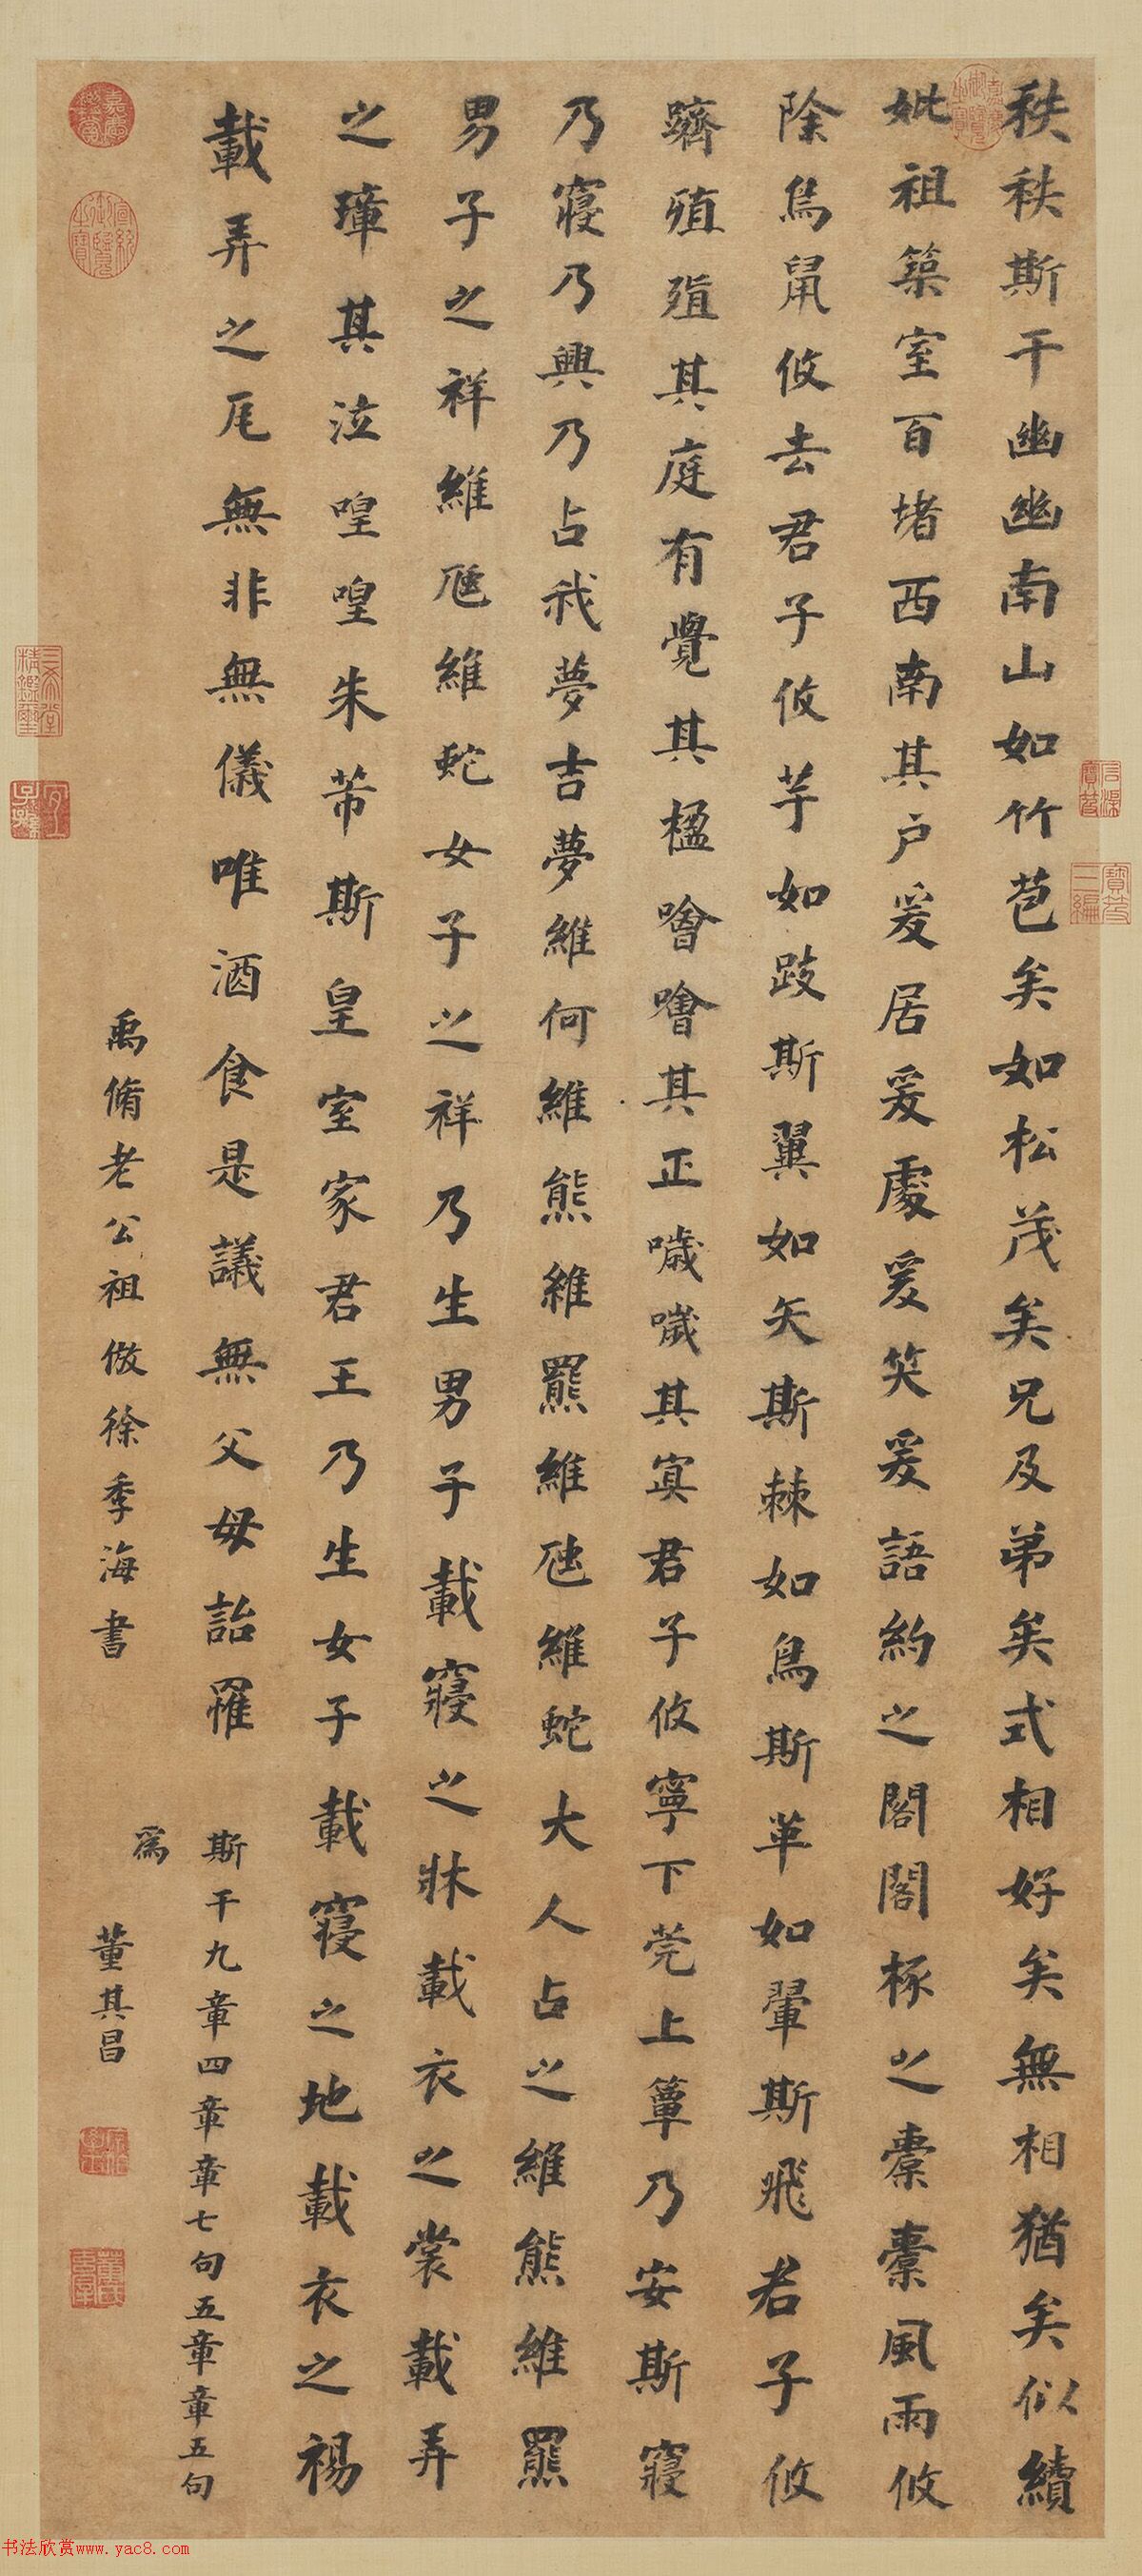 秩秩斯干幽幽南山如竹苞矣如松茂矣兄及弟矣式相好矣無相猶矣似續
妣祖築室百堵西南其户爰居爰處爰笑爰語約之閣閣椓之橐橐風雨攸
除鳥鼠攸去君子攸芋如跂斯翼如矢斯棘如鳥斯革如翬斯飛君子攸
躋殖殖其庭有覺其楹噲噲其正噦噦其冥君子攸寧下莞上簟乃安斯寢
乃寢乃興乃占我夢吉夢維何維熊維羆維虺維蛇大人占之維熊維羆
男子之祥維虺維蛇女子之祥乃生男子載寢之牀載衣之裳載弄
之璋其泣喤喤朱芾斯皇室家君王乃生女子載寢之地載衣之裼
載弄之瓦無非無儀唯酒食是議無父母詒罹
斯干九章四章章七句五章章五句
為
禹脩老公祖倣徐季海書
董其昌
嘉慶御覽之寶
嘉慶鑑賞
宣統御覽之寶
三希堂精鑑璽
宜子孫
石渠寶笈
寶笈三編
書法欣賞www.yac8.com